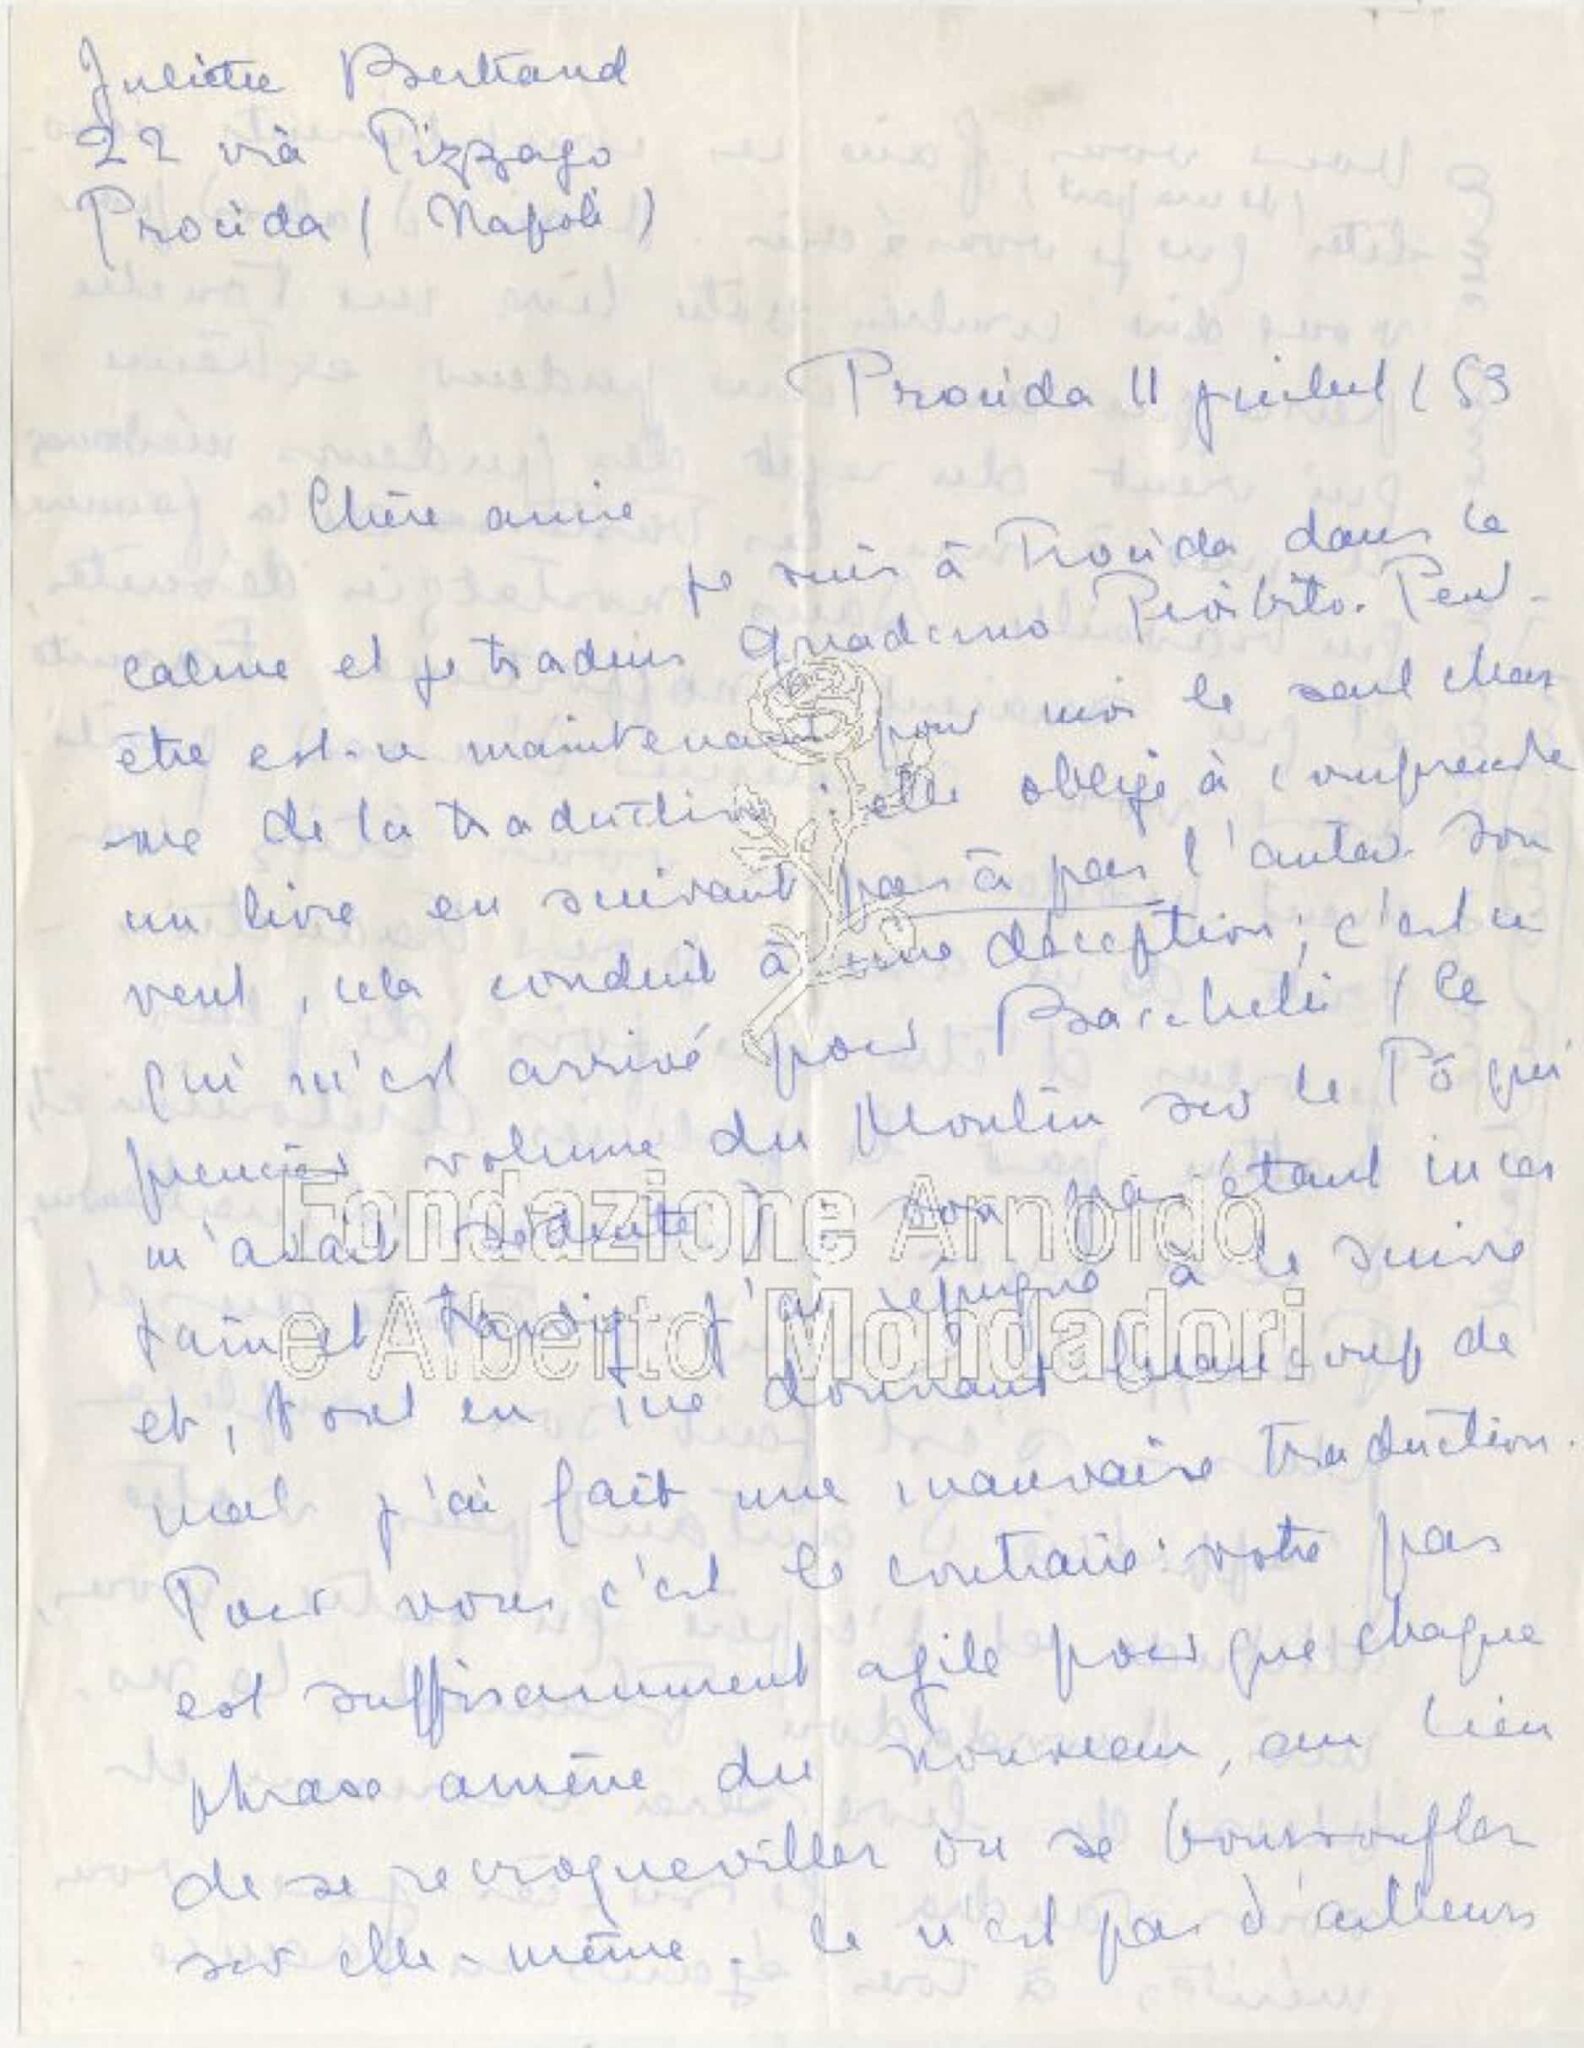 Juliette Bertrand
22 via Pizzago
Procida (Napoli)
Procida 11 juillet 53
Chère amie
je suis à Procida dans le
calme et je traduis Quaderno Proibito. Peut-
être est-ce maintenant pour moi le seul char
me de la traduction : elle oblige à comprendre
un livre en suivant pas à pas l'auteur. Sou
vent, cela conduit à une déception ; c'est ce
qui m'est arrivé pour Bacchelli (le
premier volume du Moulin sur le Pô qui
m'avait séduite) : son pas étant incer
tain et tardif j'ai répugné à le suivre
et, tout en me donnant beaucoup de
mal j'ai fait une mauvaise traduction.
Pour vous c'est le contraire : votre pas
est suffisamment agile pour que chaque
phrase amène du nouveau, au lieu
de se recroqueviller ou se boursoufler
sur elle-même. Ce n'est pas d'ailleurs
Fondazione Arnoldo
e Alberto Mondadori